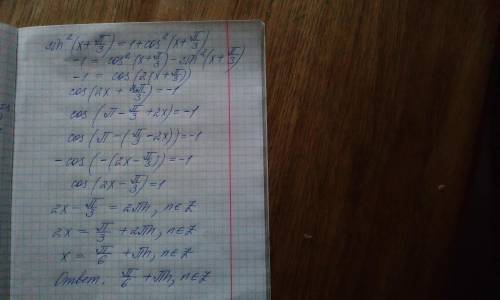 sin²(x+π/3)=1+cos²(x+π/3)
-1 = cos²(x+π/3)-sin²(x+π/3)
-1 = cos(2(x+π/3))
cos(2x + 2π/3)=-1
cos(π-π/3+2x)=-1
cos(π-(π/3-2x))=-1
-cos(-(2x-π/3))=-1
cos(2x-π/3)=1
2x-π/3=2πn, n∈Z
2x=π/3+2πn, n∈Z
x=π/6+πn, n∈Z
Ответ. π/6+πn, n∈Z